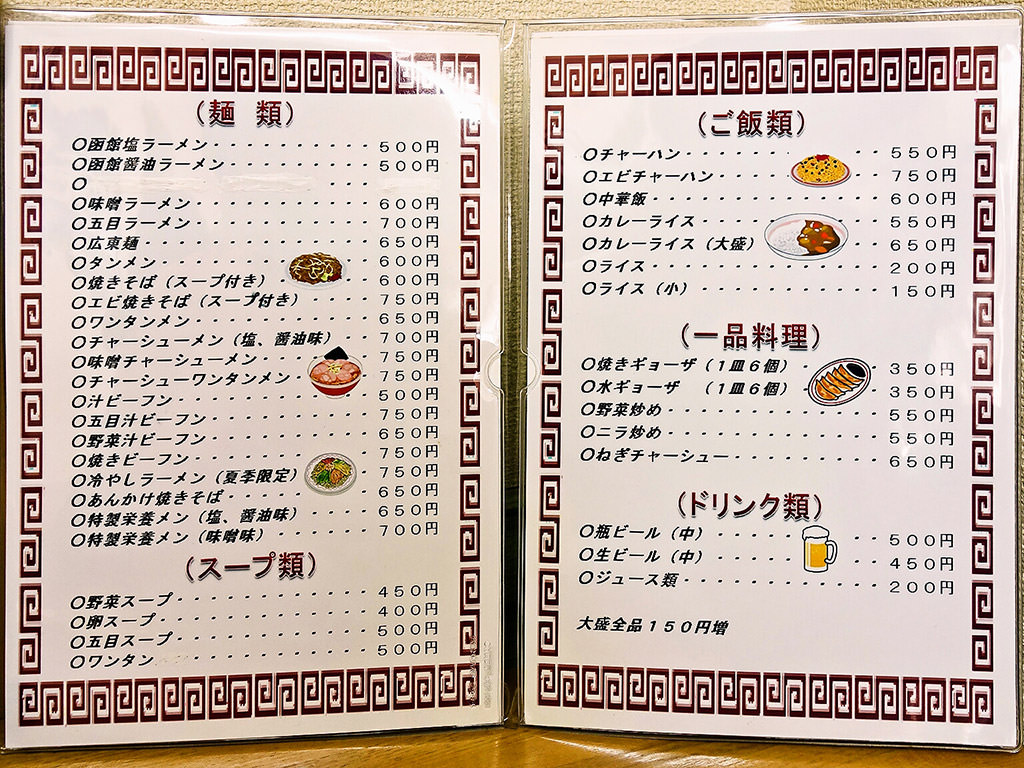 （麺　類）
〇函館塩ラーメン・・・・・・・・・・５００円
〇函館醤油ラーメン・・・・・・・・・５００円
〇　・・・
〇味噌ラーメン・・・・・・・・・・・６００円
〇五目ラーメン・・・・・・・・・・・７００円
〇広東麺・・・・・・・・・・・・・・６５０円
〇タンメン・・・・・・・・・・・・・６００円
〇焼きそば（スープ付き）・・・・・・６００円
〇エビ焼きそば（スープ付き）・・・・７５０円
〇ワンタンメン・・・・・・・・・・・６５０円
〇チャーシューメン（塩、醤油味）・・７００円
〇味噌チャーシューメン・・・・・・・７５０円
〇チャーシューワンタンメン・・・・・７５０円
〇汁ビーフン・・・・・・・・・・・・５００円
〇五目汁ビーフン・・・・・・・・・・７５０円
〇野菜汁ビーフン・・・・・・・・・・６５０円
〇焼きビーフン・・・・・・・・・・・７５０円
〇冷やしラーメン（夏季限定）・・・・７５０円
〇あんかけ焼きそば・・・・・・・・・６５０円
〇特製栄養メン（塩、醤油味）・・・・６５０円
〇特製栄養メン（味噌味）・・・・・・７００円
（スープ類）
〇野菜スープ・・・・・・・・・・・・４５０円
〇卵スープ・・・・・・・・・・・・・４００円
〇五目スープ・・・・・・・・・・・・５００円
〇ワンタン・・・・・・・・・・・・・５００円
（ご飯類）
〇チャーハン・・・・・・・・・・・・５５０円
〇エビチャーハン・・・・・・・・・・７５０円
〇中華飯・・・・・・・・・・・・・・６００円
〇カレーライス・・・・・・・・・・・５５０円
〇カレーライス（大盛）・・・・・・・６５０円
〇ライス・・・・・・・・・・・・・・２００円
〇ライス（小）・・・・・・・・・・・１５０円
（一品料理）
〇焼きギョーザ（１皿６個）・・・・・３５０円
〇水ギョーザ　（１皿６個）・・・・・３５０円
〇野菜炒め・・・・・・・・・・・・・５５０円
〇ニラ炒め・・・・・・・・・・・・・５５０円
〇ねぎチャーシュー・・・・・・・・・６５０円
（ドリンク類）
〇瓶ビール（中）・・・・・・・・・・５００円
〇生ビール（中）・・・・・・・・・・４５０円
〇ジュース類・・・・・・・・・・・・２００円
大盛全品１５０円増